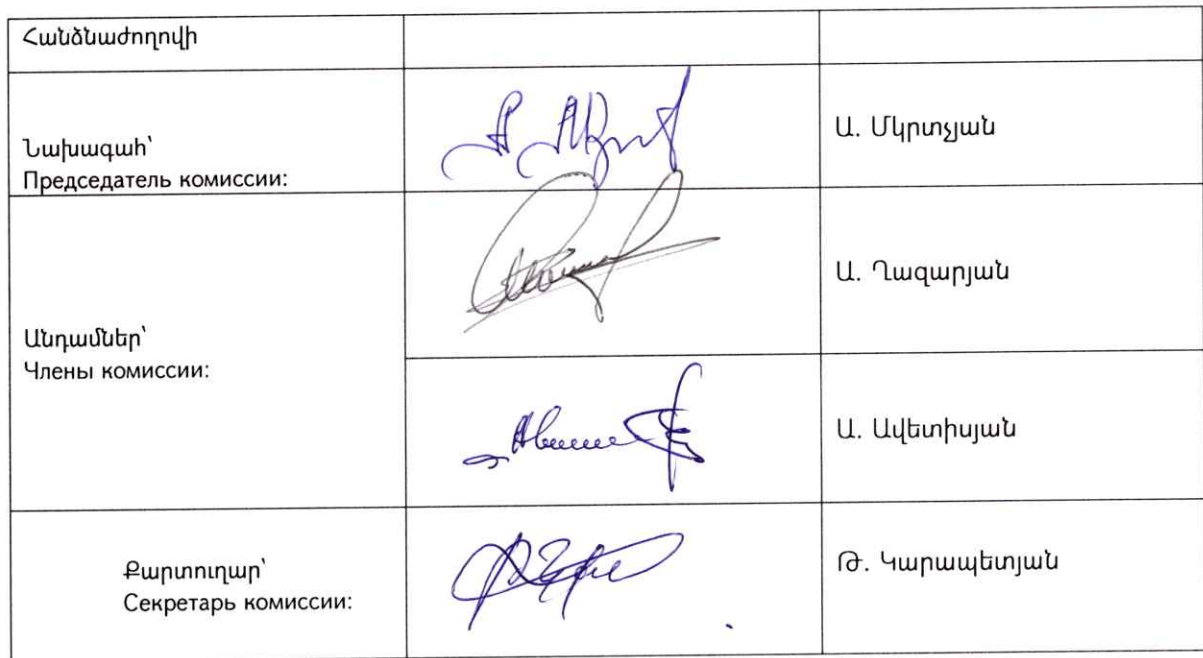 Հանձնաժողովի
Նախագահ՝
Председатель комиссии:
Ա. Մկրտչյան
Անդամներ՝
Члены комиссии:
Ա. Ղազարյան
Ա. Ավետիսյան
Քարտուղար՝
Секретарь комиссии:
Թ. Կարապետյան